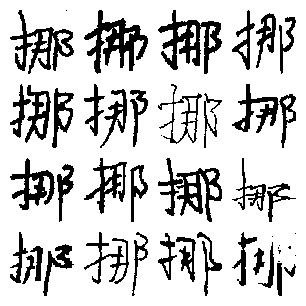 挪挪挪挪
挪挪挪挪
挪挪挪挪
挪挪挪挪